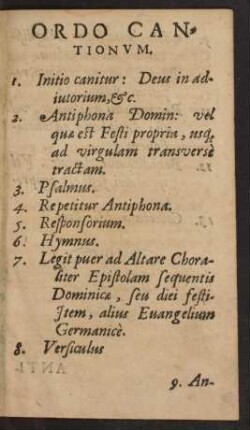 ORDO CAN-
TIONVM.
1. Initio canitur: Deus in ad-
iutorium, &c.
2. Antiphona Domin: vel
quæ est Festi propria, usq́;
ad virgulam transversè
tractam.
3. Psalmus.
4. Repetitur Antiphona.
5. Responsorium.
6. Hymnus.
7. Legit puer ad Altare Chora-
liter Epistolam sequentis
Dominicæ, seu diei festi-
Jtem, alius Euangelium
Germanicè.
8. Versiculus
9. An-